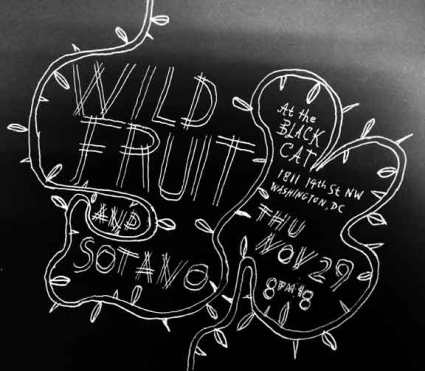 WILD
FRUIT
AND
SOTANO
At the
BLACK
CAT
1811 14th St NW
WASHINGTON, DC
THU
NOV 29
8PM $8